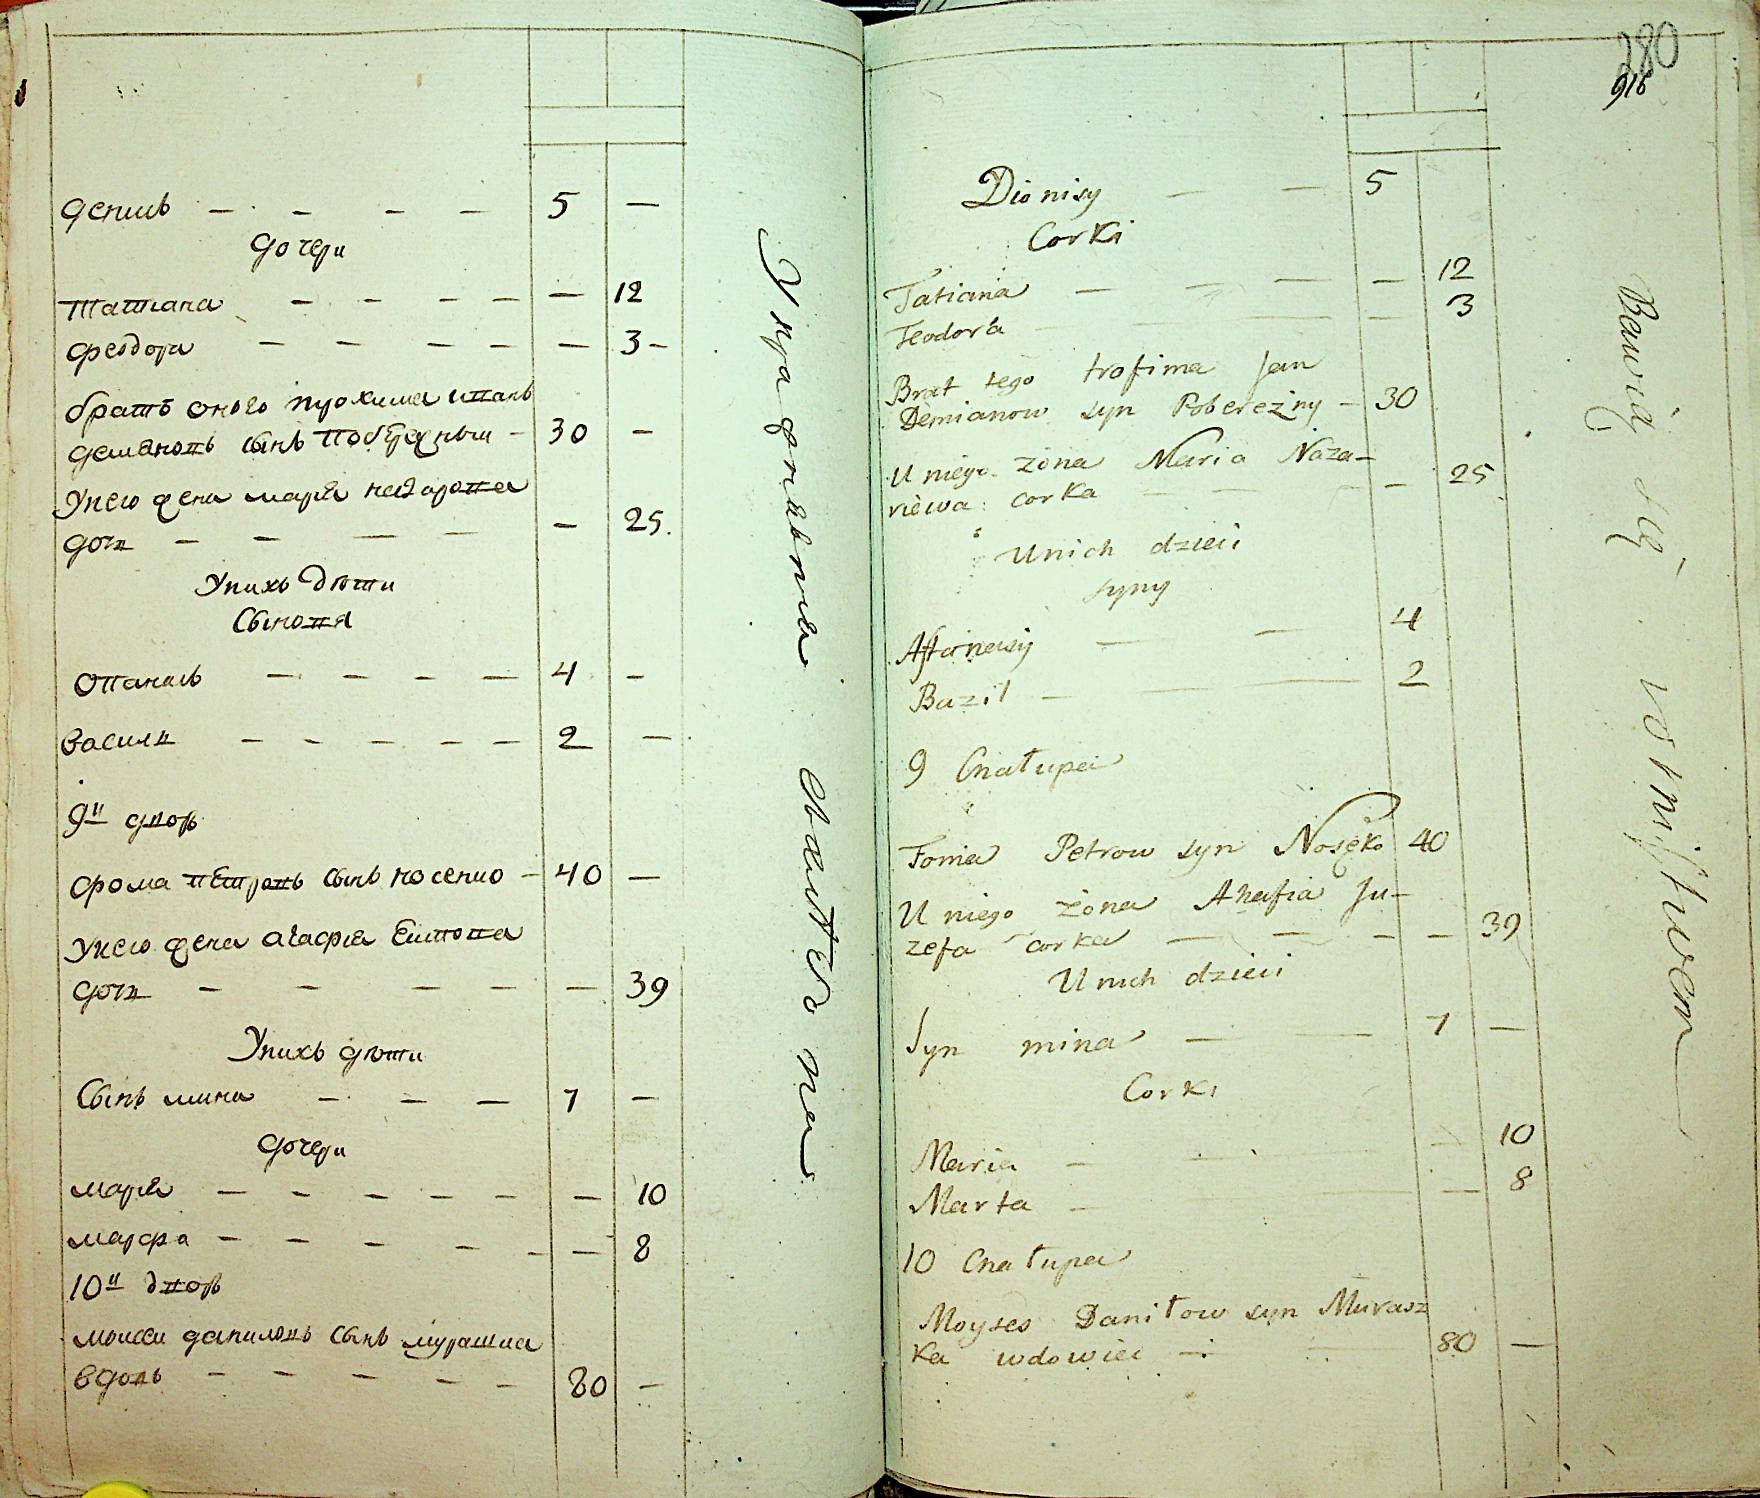 денисъ — — — — 5 —
дочери
татiана — — — — — 12
феодора — — — — — 3 —
братъ оного трохима иванъ
демяновъ сынъ побережныи — 30 —
У него жена марiя назарова
дочь — — — — — 25.
У нихъ дѣти
Сыновя
опанасъ — — — — 4 —
василь — — — — — 2 —
9й дворъ
фома петровъ сынъ носенко — 40 —
У него жена агафiя
дочь — — — — — 39
У нихъ дѣти
Сынъ мина — — — 7 —
дочери
марiя — — — — — — 10
марфа — — — — — — 8
10й дворъ
моисеи даниловъ сынъ мурашка
вдовъ — — — — — 80 —
280
916
Dionisy — — 5
Corki
Tatiana — — — — 12
Teodora — — — 3
Brat tego trofima Jan
Demianow syn Pobereżny — 30
U niego żona Maria Naza-
riewa corka — — — — 25
U nich dzieci
syny
Aftanasy — — 4
Bazil — — — 2
9 Chałupa
Foma Petrow syn Nosęko 40
U niego żona Ahafia Ju-
zefa corka — — — — 39
U nich dzieci
Syn mina — — 7 —
Corki
Maria — — — 10
Marta — — — 8
10 Chałupa
Moyses Daniłow syn Murasz
ka wdowiec — — 80 —
Bawią się rolnictwem